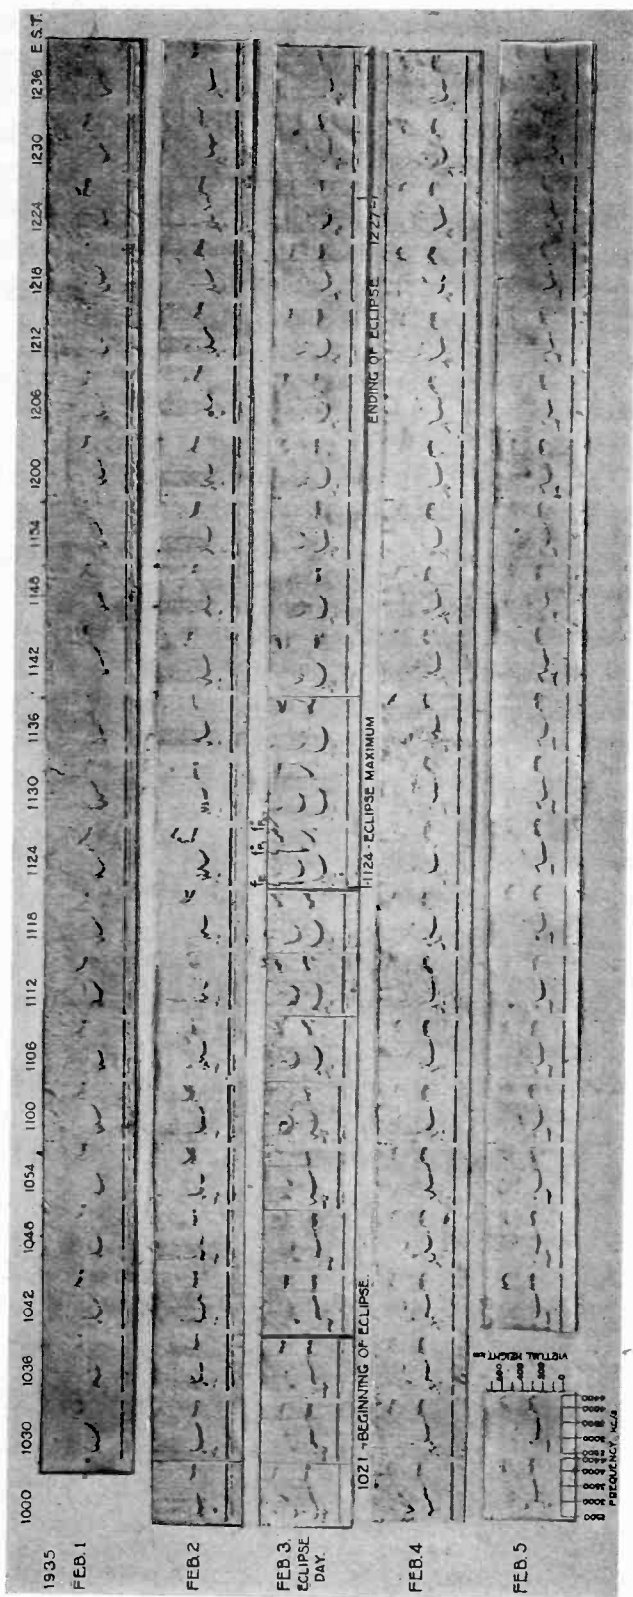 1935
1000 1030 1036 1042 1048 1054 1100 1106 1112 1118 1124 1130 1136 1142 1148 1154 1200 1206 1212 1218 1224 1230 1236 E.S.T.
FEB. 1
FEB. 2
FEB. 3.
ECLIPSE
DAY.
fE fF1 fF2
1021 -BEGINNING OF ECLIPSE.
1124 - ECLIPSE MAXIMUM
ENDING OF ECLIPSE 1227
FEB. 4
FEB. 5
VIRTUAL HEIGHT KM
FREQUENCY, KC/S